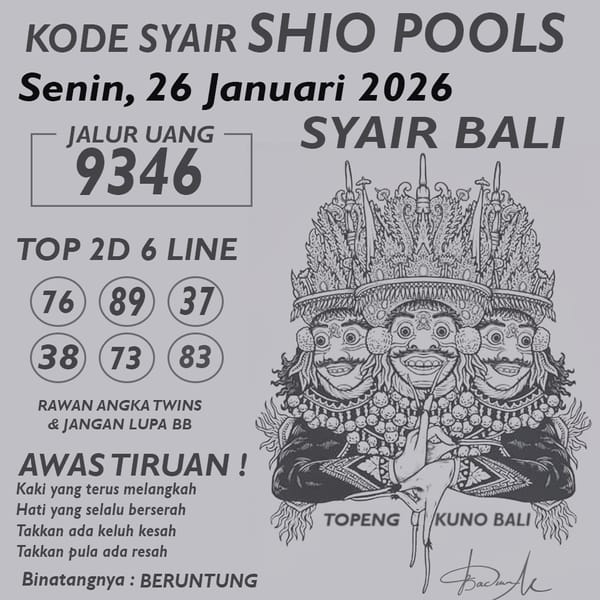 KODE SYAIR SHIO POOLS
Senin, 26 Januari 2026
SYAIR BALI
JALUR UANG
9346
TOP 2D 6 LINE
76 89 37
38 73 83
RAWAN ANGKA TWINS
& JANGAN LUPA BB
AWAS TIRUAN !
Kaki yang terus melangkah
Hati yang selalu berserah
Takkan ada keluh kesah
Takkan pula ada resah
Binatangnya : BERUNTUNG
TOPENG KUNO BALI